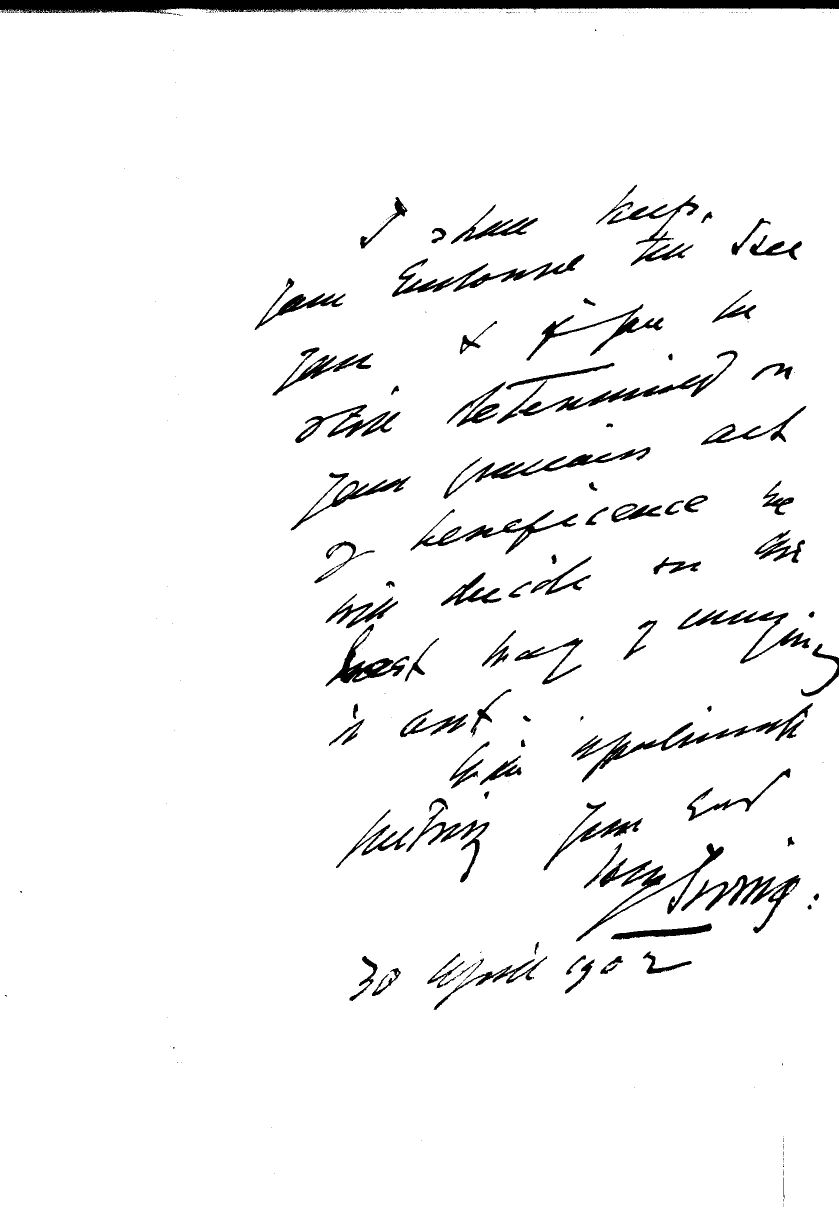 I shall keep
your Enclosure till I see
you & if you be
still determined on
your gracious act
of beneficence we
will decide on the
best way of carrying
it out.
With affectionate
greeting
Henry Irving.
30 April 1902